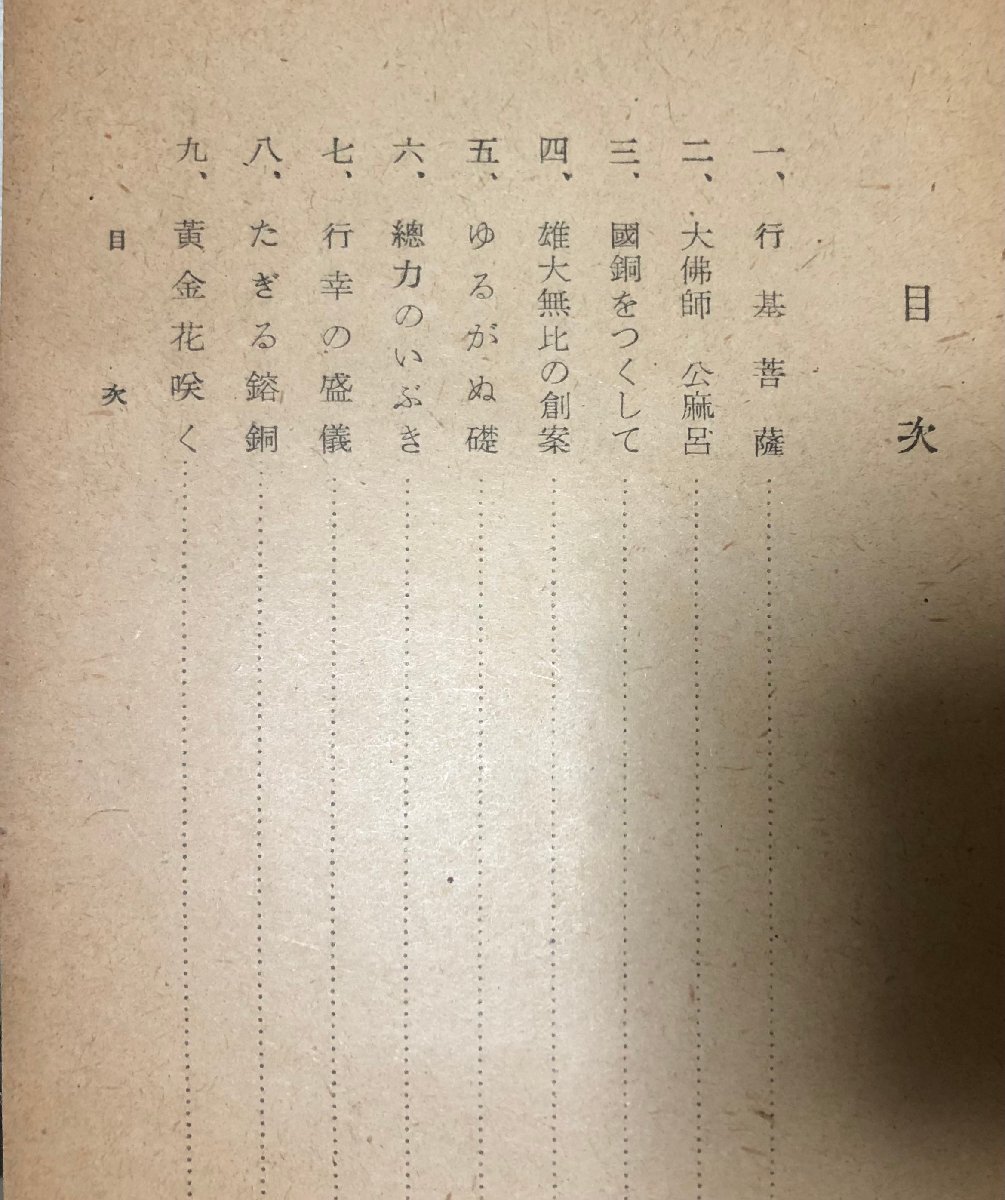 目次
一、行基菩薩
二、大佛師 公麻呂
三、國銅をつくして
四、雄大無比の創案
五、ゆるがぬ礎
六、總力のいぶき
七、行幸の盛儀
八、たぎる鎔銅
九、黃金花咲く
目次